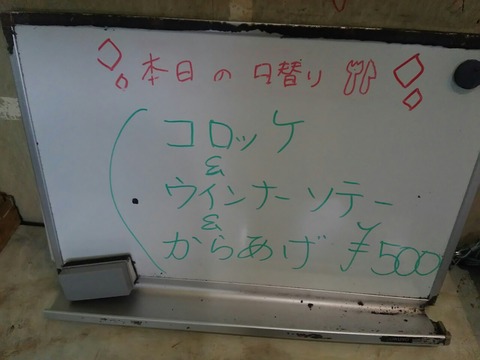 本日の日替り
コロッケ
&
ウインナーソテー
&
からあげ ¥500